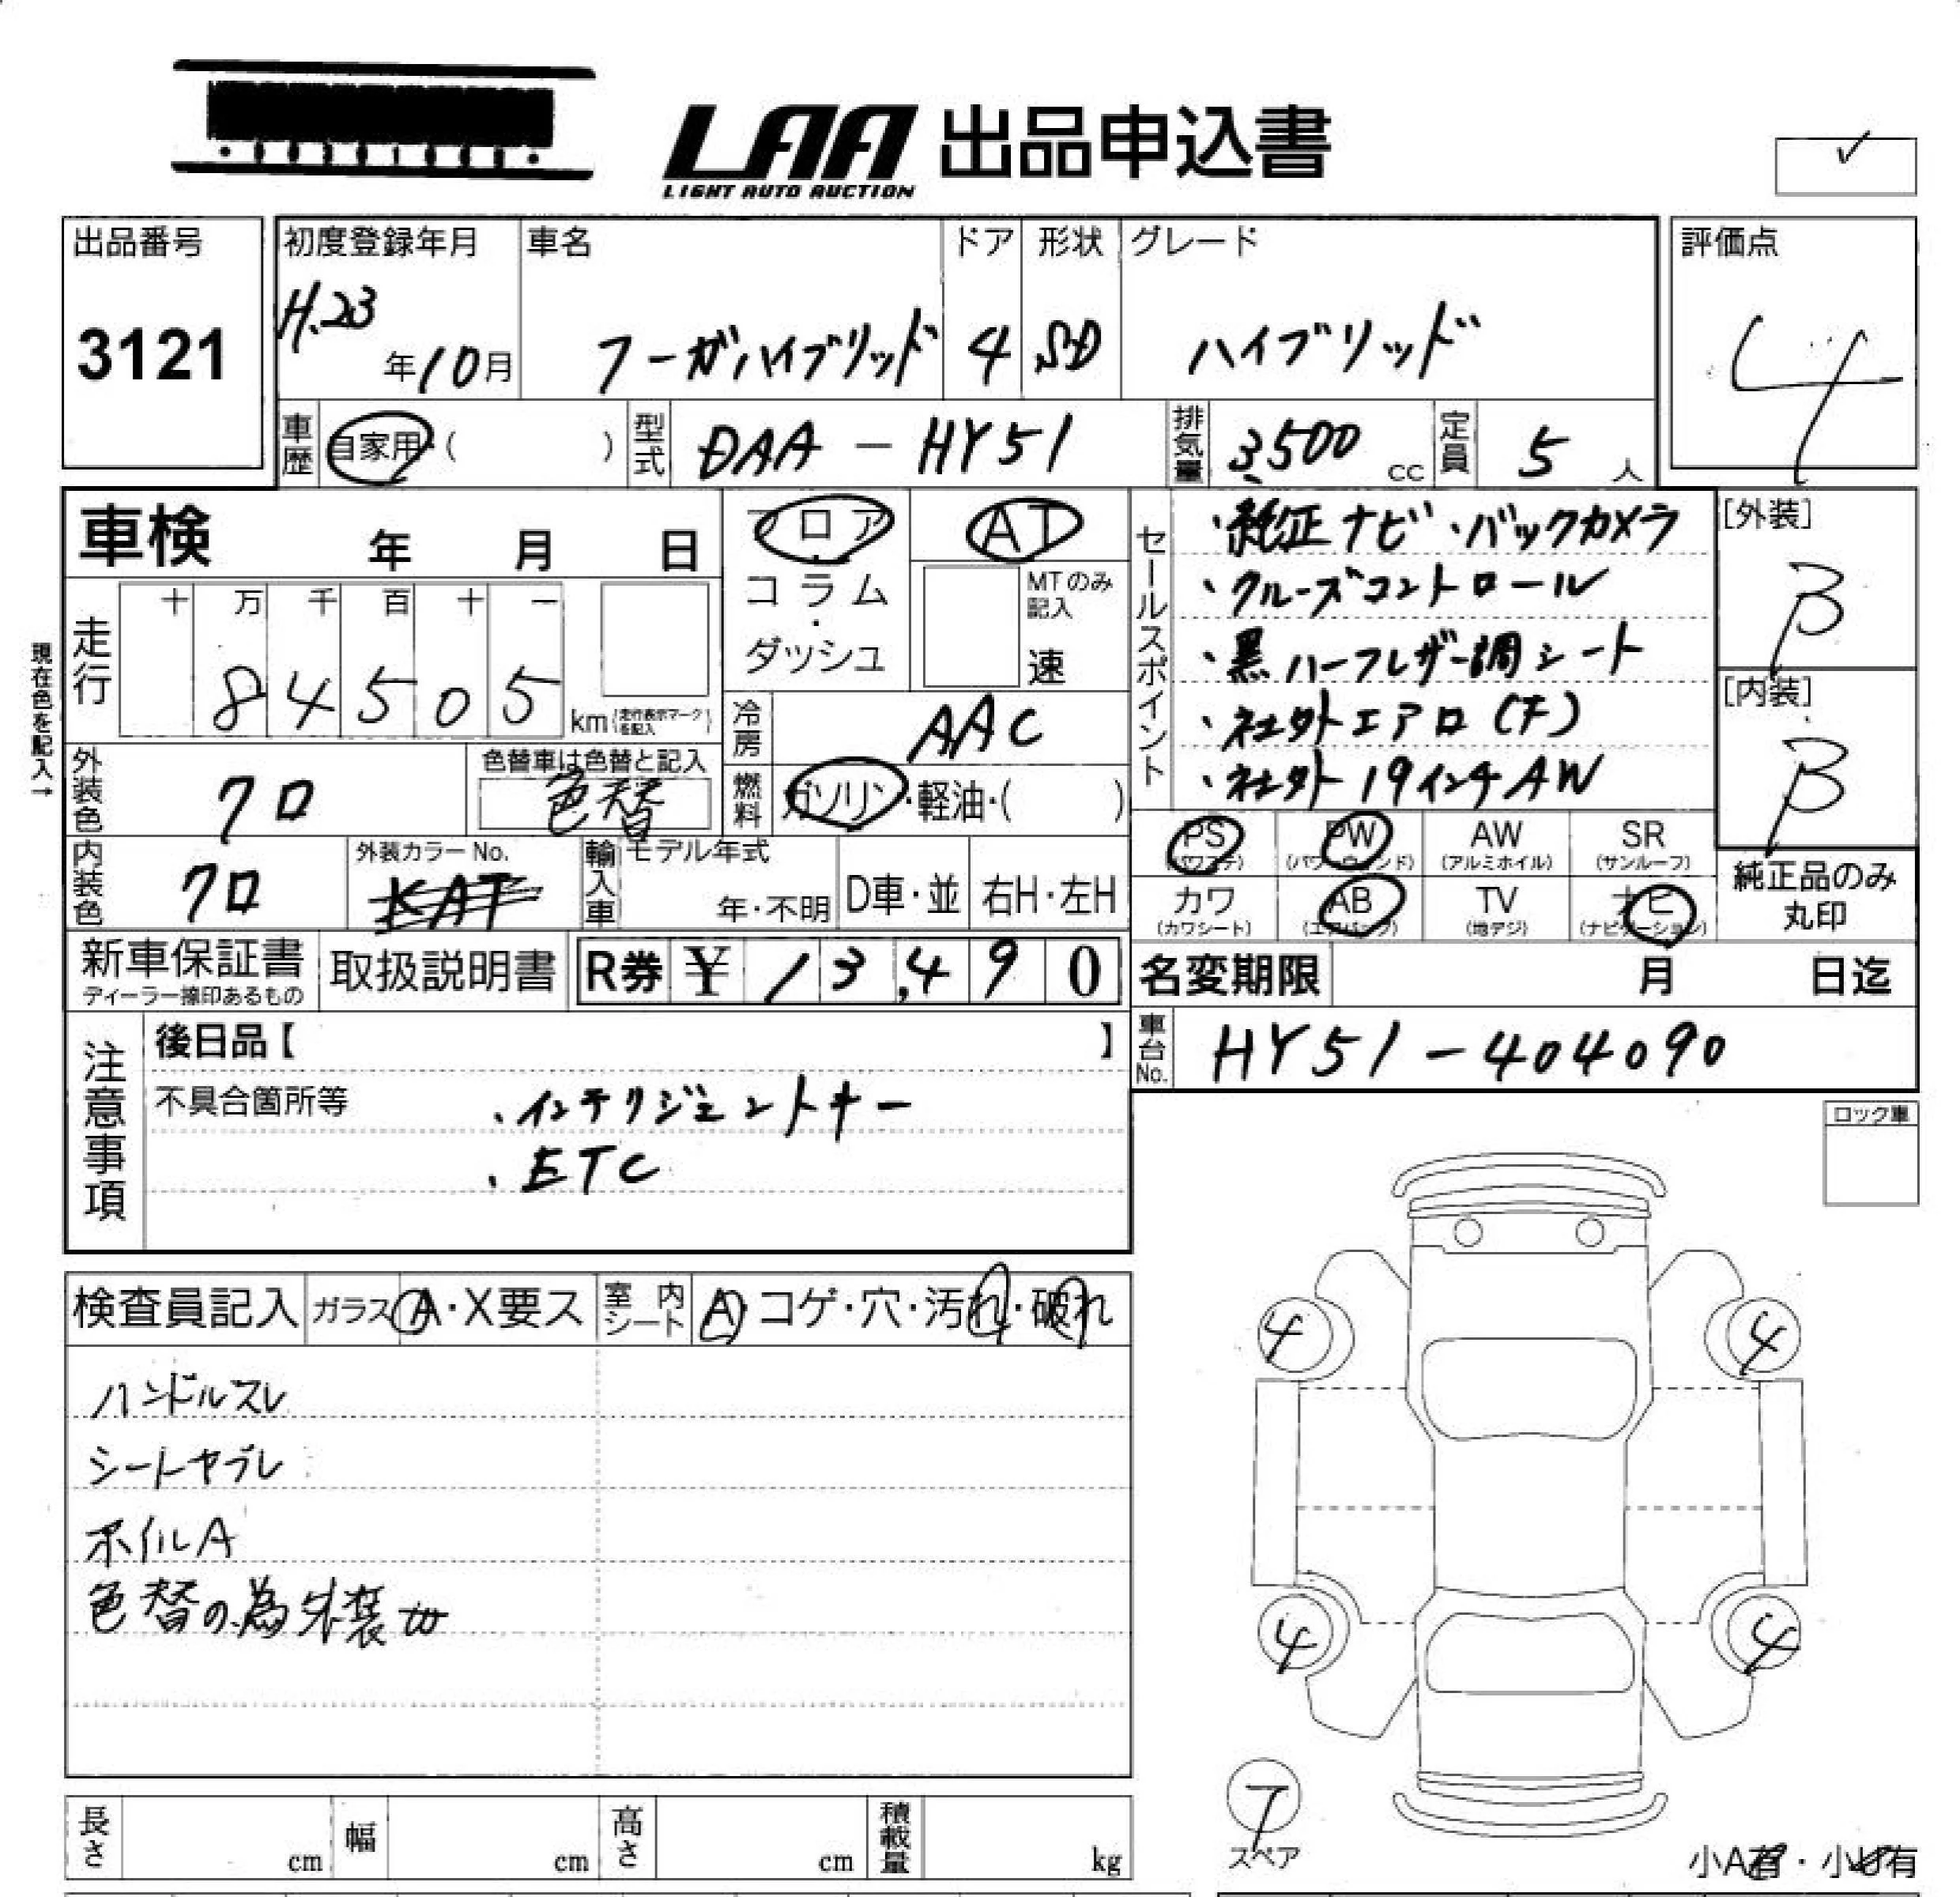 LAA 出品申込書
LIGHT AUTO AUCTION
出品番号
3121
初度登録年月
H.23年10月
車名
フーガハイブリッド
ドア
4
形状
SD
グレード
ハイブリッド
評価点
4
車歴 自家用・( )
型式 DAA-HY51
排気量 3500cc
定員 5人
車検 年 月 日
現在色を記入→
走行
十 万 千 百 十 一
8 4 5 0 5 km (走行表示マークを記入)
フロア・コラム・ダッシュ
AT
MTのみ記入
速
冷房 AAC
燃料 ガソリン・軽油・( )
外装色 クロ
色替車は色替と記入
色替
内装色 クロ
外装カラーNo.
KAT
輸入車
モデル年式
年・不明
D車・並
右H・左H
セールスポイント
・純正ナビ・バックカメラ
・クルーズコントロール
・黒ハーフレザー調シート
・社外エアロ(F)
・社外19インチAW
[外装]
B
[内装]
B
PS (パワステ)
PW (パワーウィンド)
AW (アルミホイル)
SR (サンルーフ)
カワ (カワシート)
AB (エアバッグ)
TV (地デジ)
ナビ (ナビゲーション)
純正品のみ丸印
新車保証書
ディーラー捺印あるもの
取扱説明書
R券 ¥ 13,490
名変期限 月 日迄
車台No. HY51-404090
注意事項
後日品【 】
不具合箇所等
・インテリジェントキー
・ETC
ロック車
検査員記入 ガラス A・X要ス 室内シート A・コゲ・穴・汚れ・破れ
ハンドルスレ
シートヤブレ
ホイルA
色替の為外装
4 4
4 4
7
スペア
長さ cm 幅 cm 高さ cm 積載量 kg
小A有・小U有